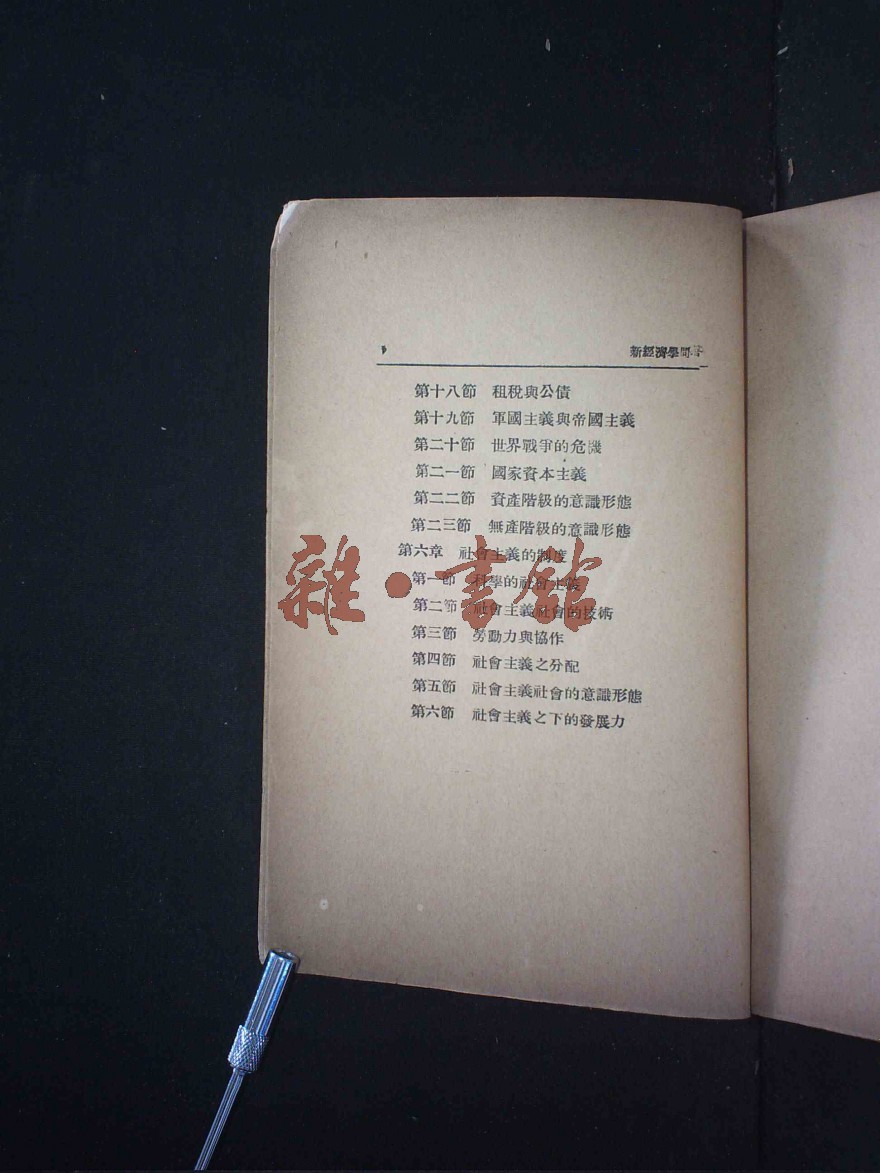 新經濟學問答
第十八節 租稅與公債
第十九節 軍國主義與帝國主義
第二十節 世界戰爭的危機
第二一節 國家資本主義
第二二節 資產階級的意識形態
第二三節 無產階級的意識形態
第六章 社會主義的制度
第一節 科學的社會主義
第二節 社會主義社會的技術
第三節 勞動力與協作
第四節 社會主義之分配
第五節 社會主義社會的意識形態
第六節 社會主義之下的發展力
雜·書館